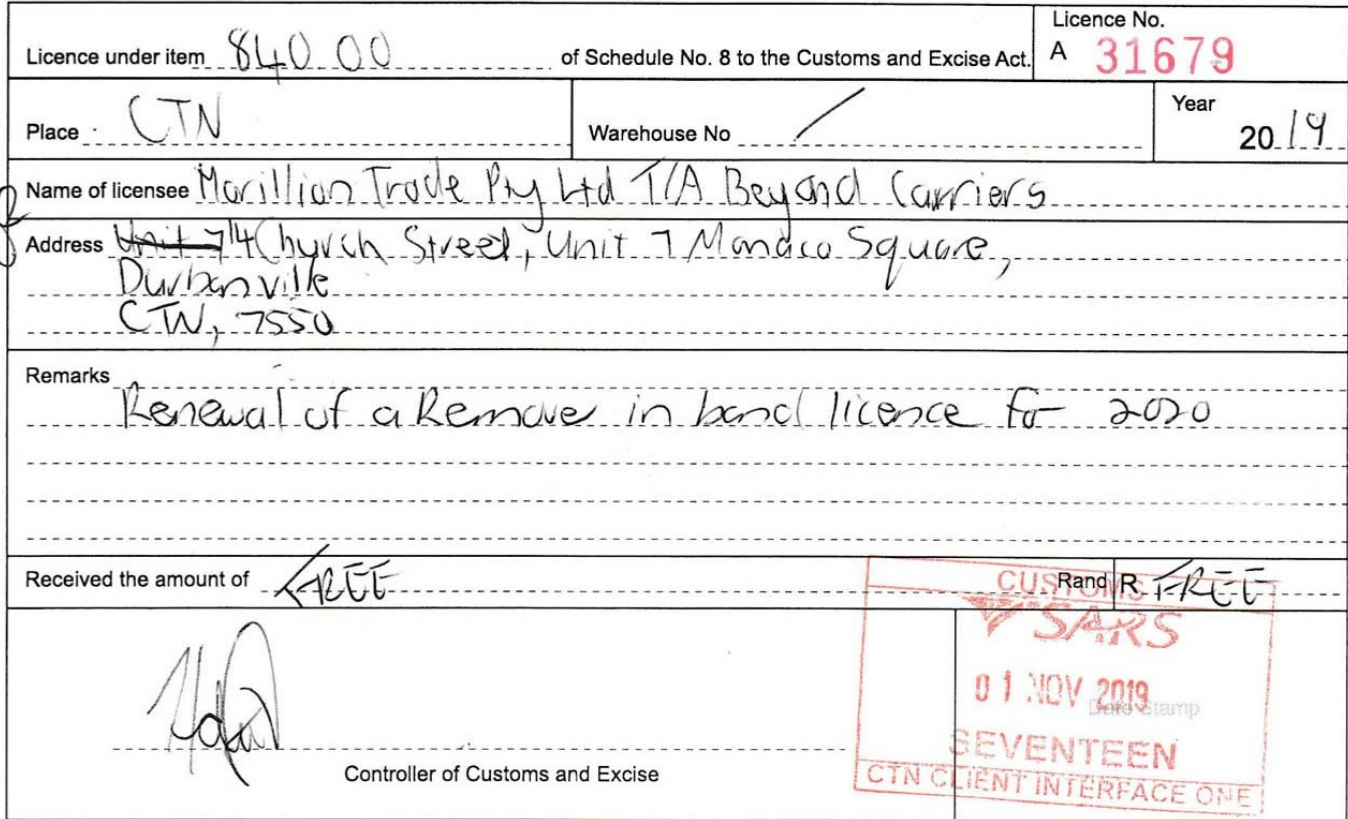 Licence under item 840 00 of Schedule No. 8 to the Customs and Excise Act.
Licence No.
A 31679
Place CTN
Warehouse No /
Year
2019
Name of licensee Marillian Trade Pty Ltd T/A Beyond Carriers
Address Unit 7 14 Church Street, Unit 7 Monaco Square,
Durbanville
CTN, 7550
Remarks
Renewal of a Remover in bond licence for 2020
Received the amount of FREE Rand R FREE
CUSTOMS
SARS
01 NOV 2019
Date Stamp
SEVENTEEN
CTN CLIENT INTERFACE ONE
Controller of Customs and Excise